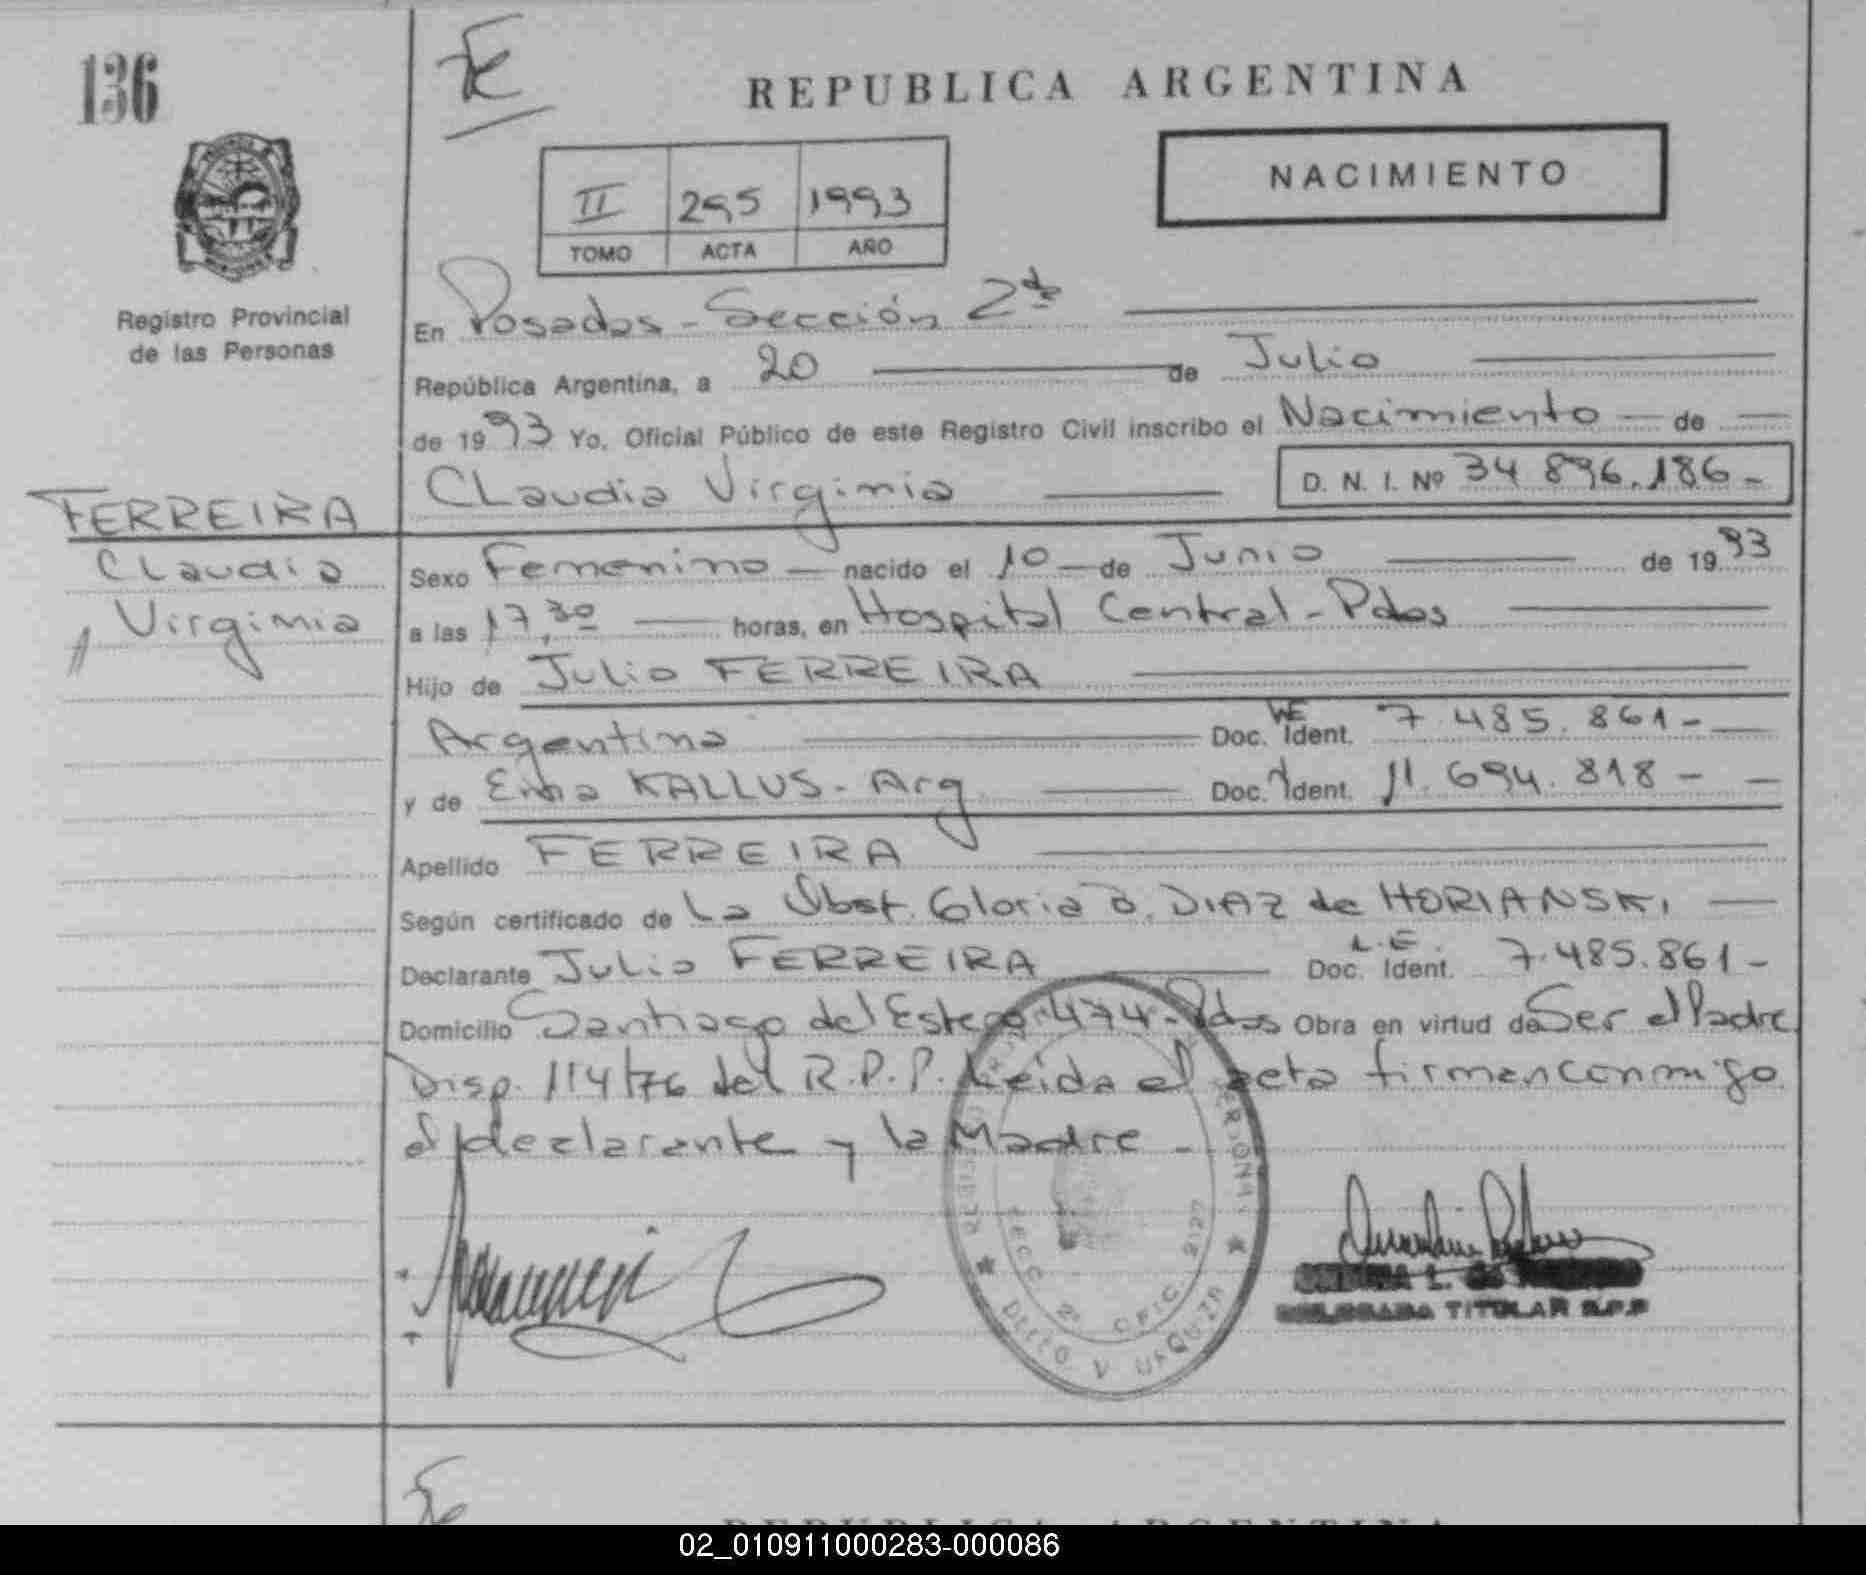 136
REPUBLICA ARGENTINA
NACIMIENTO
II 295 1993
TOMO ACTA AÑO
Registro Provincial
de las Personas
En Posadas - Sección 2da
República Argentina, a 20 de Julio
de 1993 Yo, Oficial Público de este Registro Civil inscribo el Nacimiento de
Claudia Virginia D. N. I. Nº 34 896.186-
FERREIRA
Claudia
Virginia
Sexo Femenino nacido el 10 de Junio de 1993
a las 17,30 horas, en Hospital Central - Pdas
Hijo de Julio FERREIRA
Argentino Doc. Ident. 7.485.861-
y de KALLUS - Arg Doc. Ident. 11.694.818-
Apellido FERREIRA
Según certificado de La Obst. Gloria D. DIAZ de HORIANSKI
Declarante Julio FERREIRA L.E. Doc. Ident. 7.485.861-
Domicilio Santiago del Estero 474 - Pdas Obra en virtud de Ser el Padre
Disp. 114/76 del R.P.P. Leida el acta firman conmigo
el declarante y la Madre -
SECC 2ª OFIC 2127
DELEGADA TITULAR R.P.P
REPUBLICA ARGENTINA
02_010911000283-000086